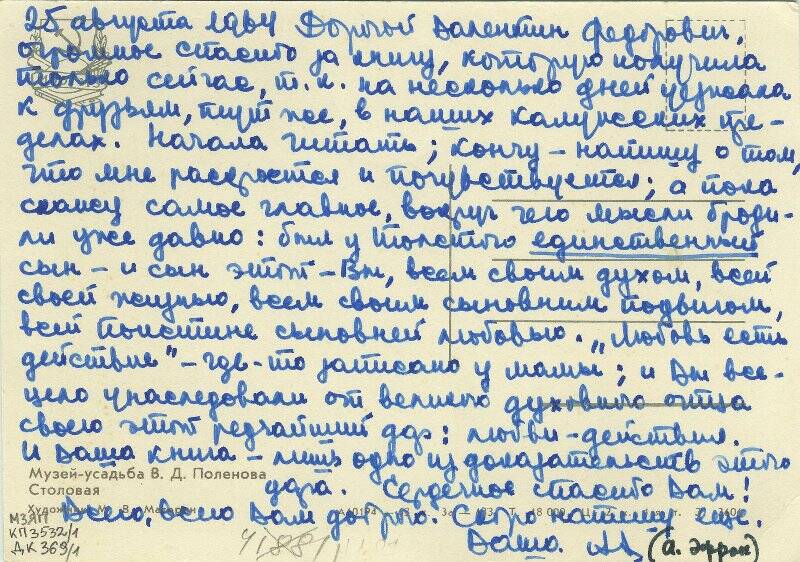 25 августа 1964 Дорогой Валентин Федорович,
огромное спасибо за книгу, которую получила
только сейчас, т. к. на несколько дней уезжала
к друзьям, тут же, в наших калужских пре-
делах. Начала читать; кончу – напишу о том,
что мне раскроется и почувствуется; а пока
скажу самое главное, вокруг чего мысли броди-
ли уже давно: был у Толстого единственный
сын – и сын этот – Вы, всем своим духом, всей
своей жизнью, всем своим сыновним подвигом,
всей поистине сыновней любовью. „Любовь есть
действие" – где-то записано у мамы; и Вы все-
цело унаследовали от великого духовного отца
своего этот редчайший дар: любви-действия.
И Ваша книга – лишь одно из доказательств этого
дара. Сердечное спасибо Вам!
Всего, всего Вам доброго. Скоро напишу еще.
Ваша АЭ (А. Эфрон)
Музей-усадьба В. Д. Поленова
Столовая
Художник М. В.
МЗЯП
КП3532/1
ДК369/1